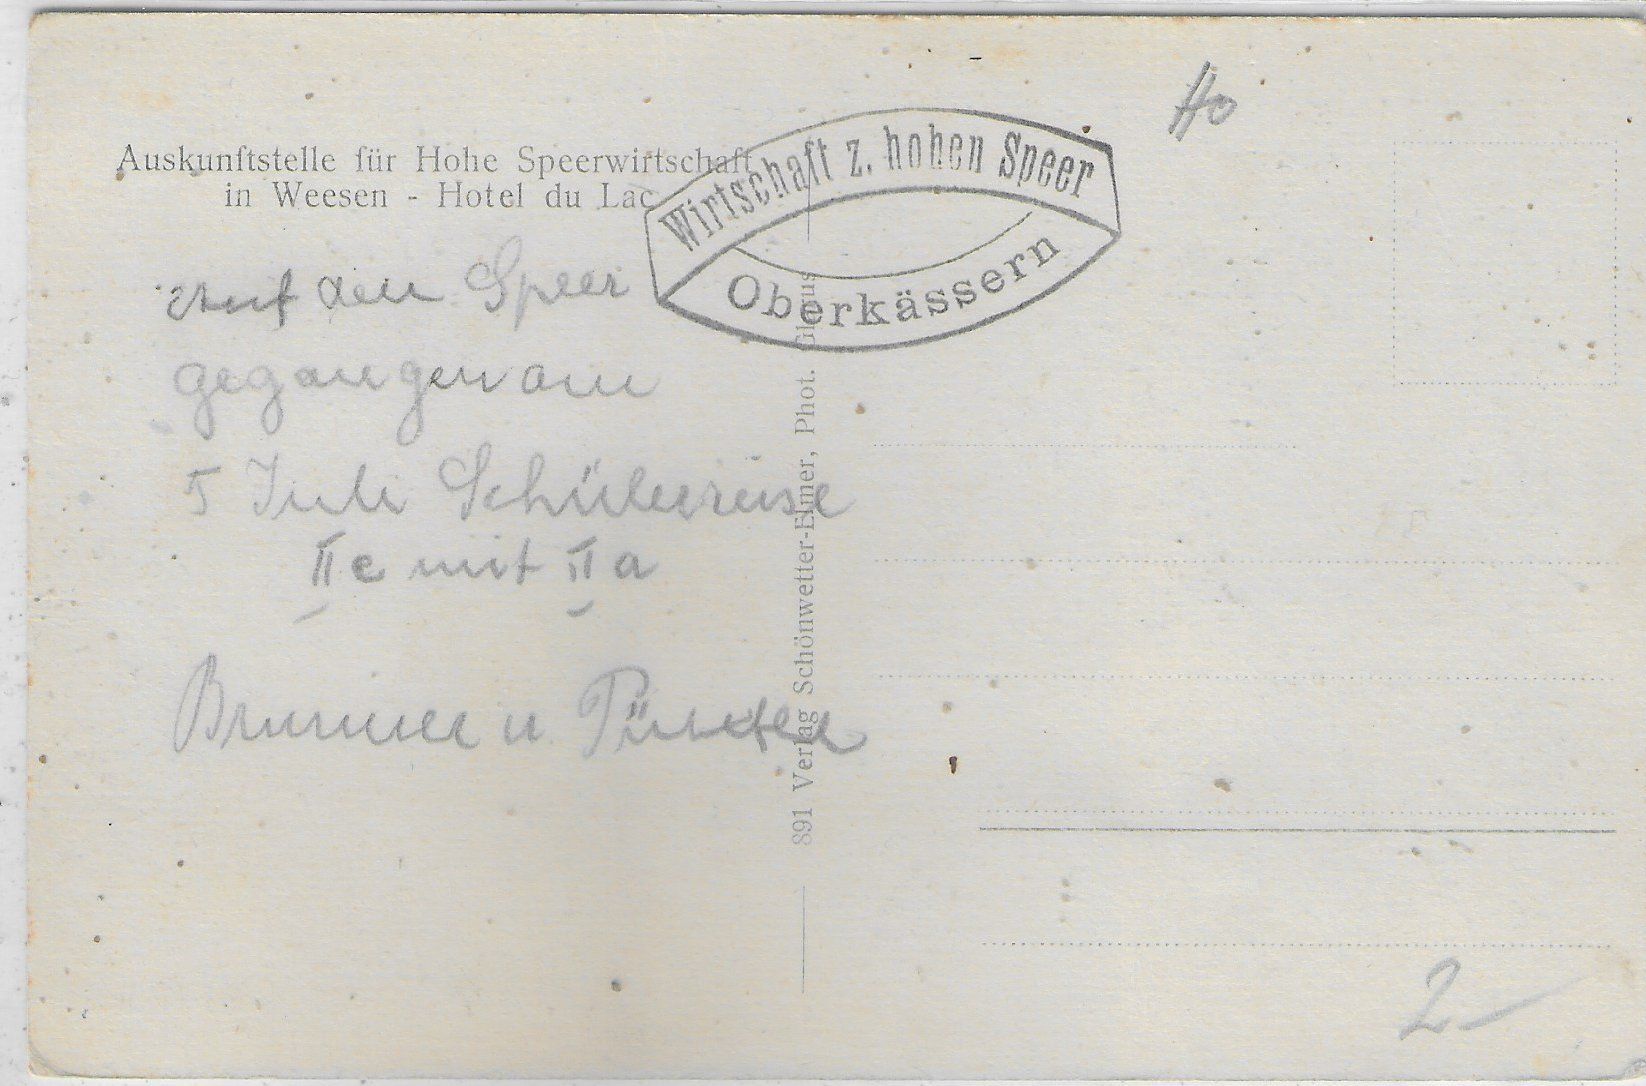 Auskunftstelle für Hohe Speerwirtschaft
in Weesen - Hotel du Lac
Wirtschaft z. hohen Speer
Oberkässern
Auf den Speer
gegangen am
5 Juli Schülerreise
IIc mit IIa
Brunner u
891 Verlag Schönwetter-Elmer, Phot. Glarus
2–